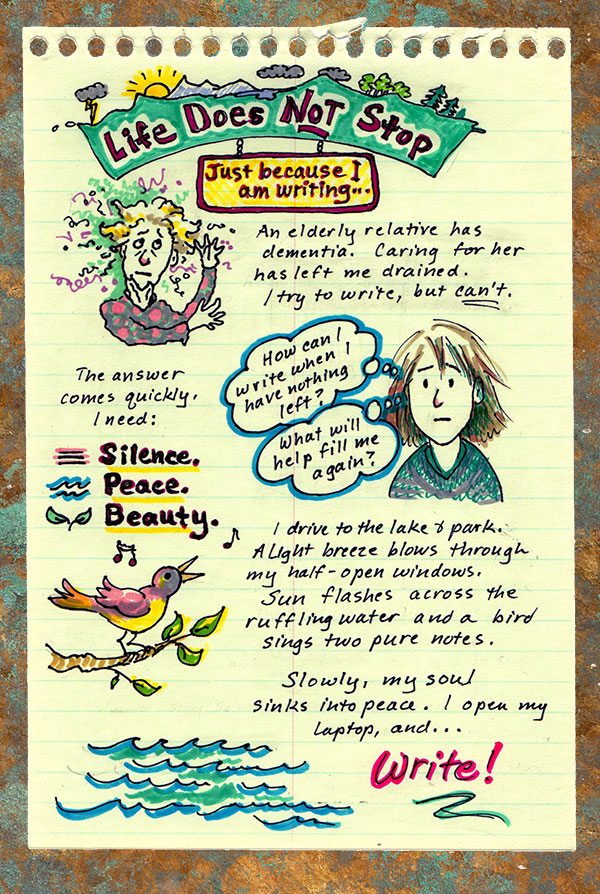 Life Does NOT Stop
Just because I
am writing...
An elderly relative has
dementia. Caring for her
has left me drained.
I try to write, but can't.
How can I
write when I
have nothing
left?
What will
help fill me
again?
The answer
comes quickly.
I need:
Silence.
Peace.
Beauty.
I drive to the lake & park.
A Light breeze blows through
my half-open windows.
Sun flashes across the
ruffling water and a bird
sings two pure notes.
Slowly, my soul
sinks into peace. I open my
laptop, and...
Write!